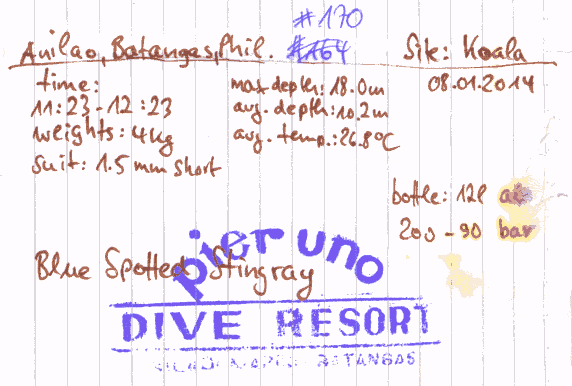 #170
Anilao, Batangas, Phil. #164 Site: Koala
time: max depth: 18.0m 08.01.2014
11:23-12:23 avg. depth: 10.2m
weights: 4kg avg. temp.: 26.8°C
suit: 1.5 mm short
bottle: 12l
200 - 90 bar
pier uno
Blue Spotted Stingray
DIVE RESORT
BATANGAS